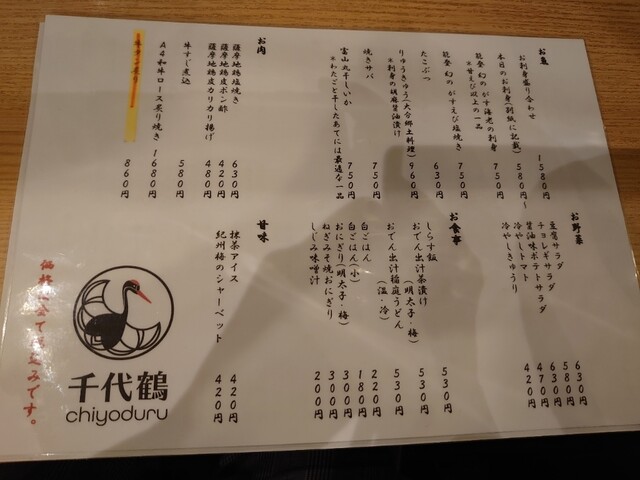 お魚
お刺身盛り合わせ 1580円
本日のお刺身(別紙に記載) 580円～
能登 幻のがすえび海老の刺身 750円
※甘えび以上の一品
能登 幻のがすえび塩焼き 750円
たこぶつ 630円
りゅうきゅう(大分郷土料理) 960円
※刺身の胡麻醤油漬け
焼きサバ 750円
富山丸干しいか 750円
※わたごと干したあてには最適な一品
お肉
薩摩地鶏塩焼き 630円
薩摩地鶏皮ポン酢 420円
薩摩地鶏皮カリカリ揚げ 480円
牛すじ煮込 580円
A4和牛ロース炙り焼き 1680円
860円
お野菜
豆腐サラダ 630円
チョレギサラダ 580円
醤油味ポテトサラダ 630円
冷やしトマト 470円
冷やしきゅうり 420円
お食事
しらす飯 530円
おでん出汁茶漬け 530円
(明太子・梅)
おでん出汁稲庭うどん 530円
(温・冷)
白ごはん 220円
白ごはん(小) 180円
おにぎり(明太子・梅) 300円
ねぎみそ焼おにぎり 300円
しじみ味噌汁 200円
甘味
抹茶アイス 420円
紀州梅のシャーベット 420円
価格は全て税込みです。
千代鶴
chiyoduru